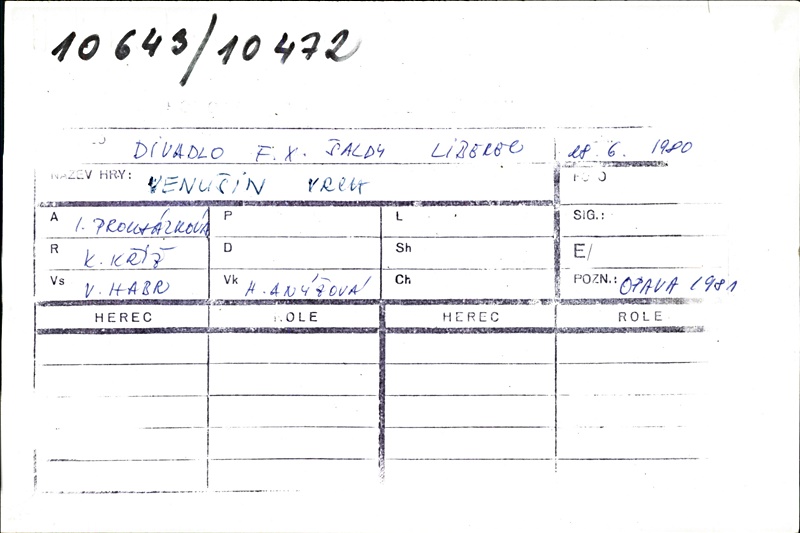 10643/10472
DIVADLO F. X. ŠALDY LIBEREC 28. 6. 1980
NÁZEV HRY: VENUŠIN VRCH
A I. PROCHÁZKOVÁ P L SIG.:
R K. KŘÍŽ D Sh E/
Vs V. HABR Vk H. ANÝŽOVÁ Ch POZN.: OPAVA 1981
HEREC ROLE HEREC ROLE